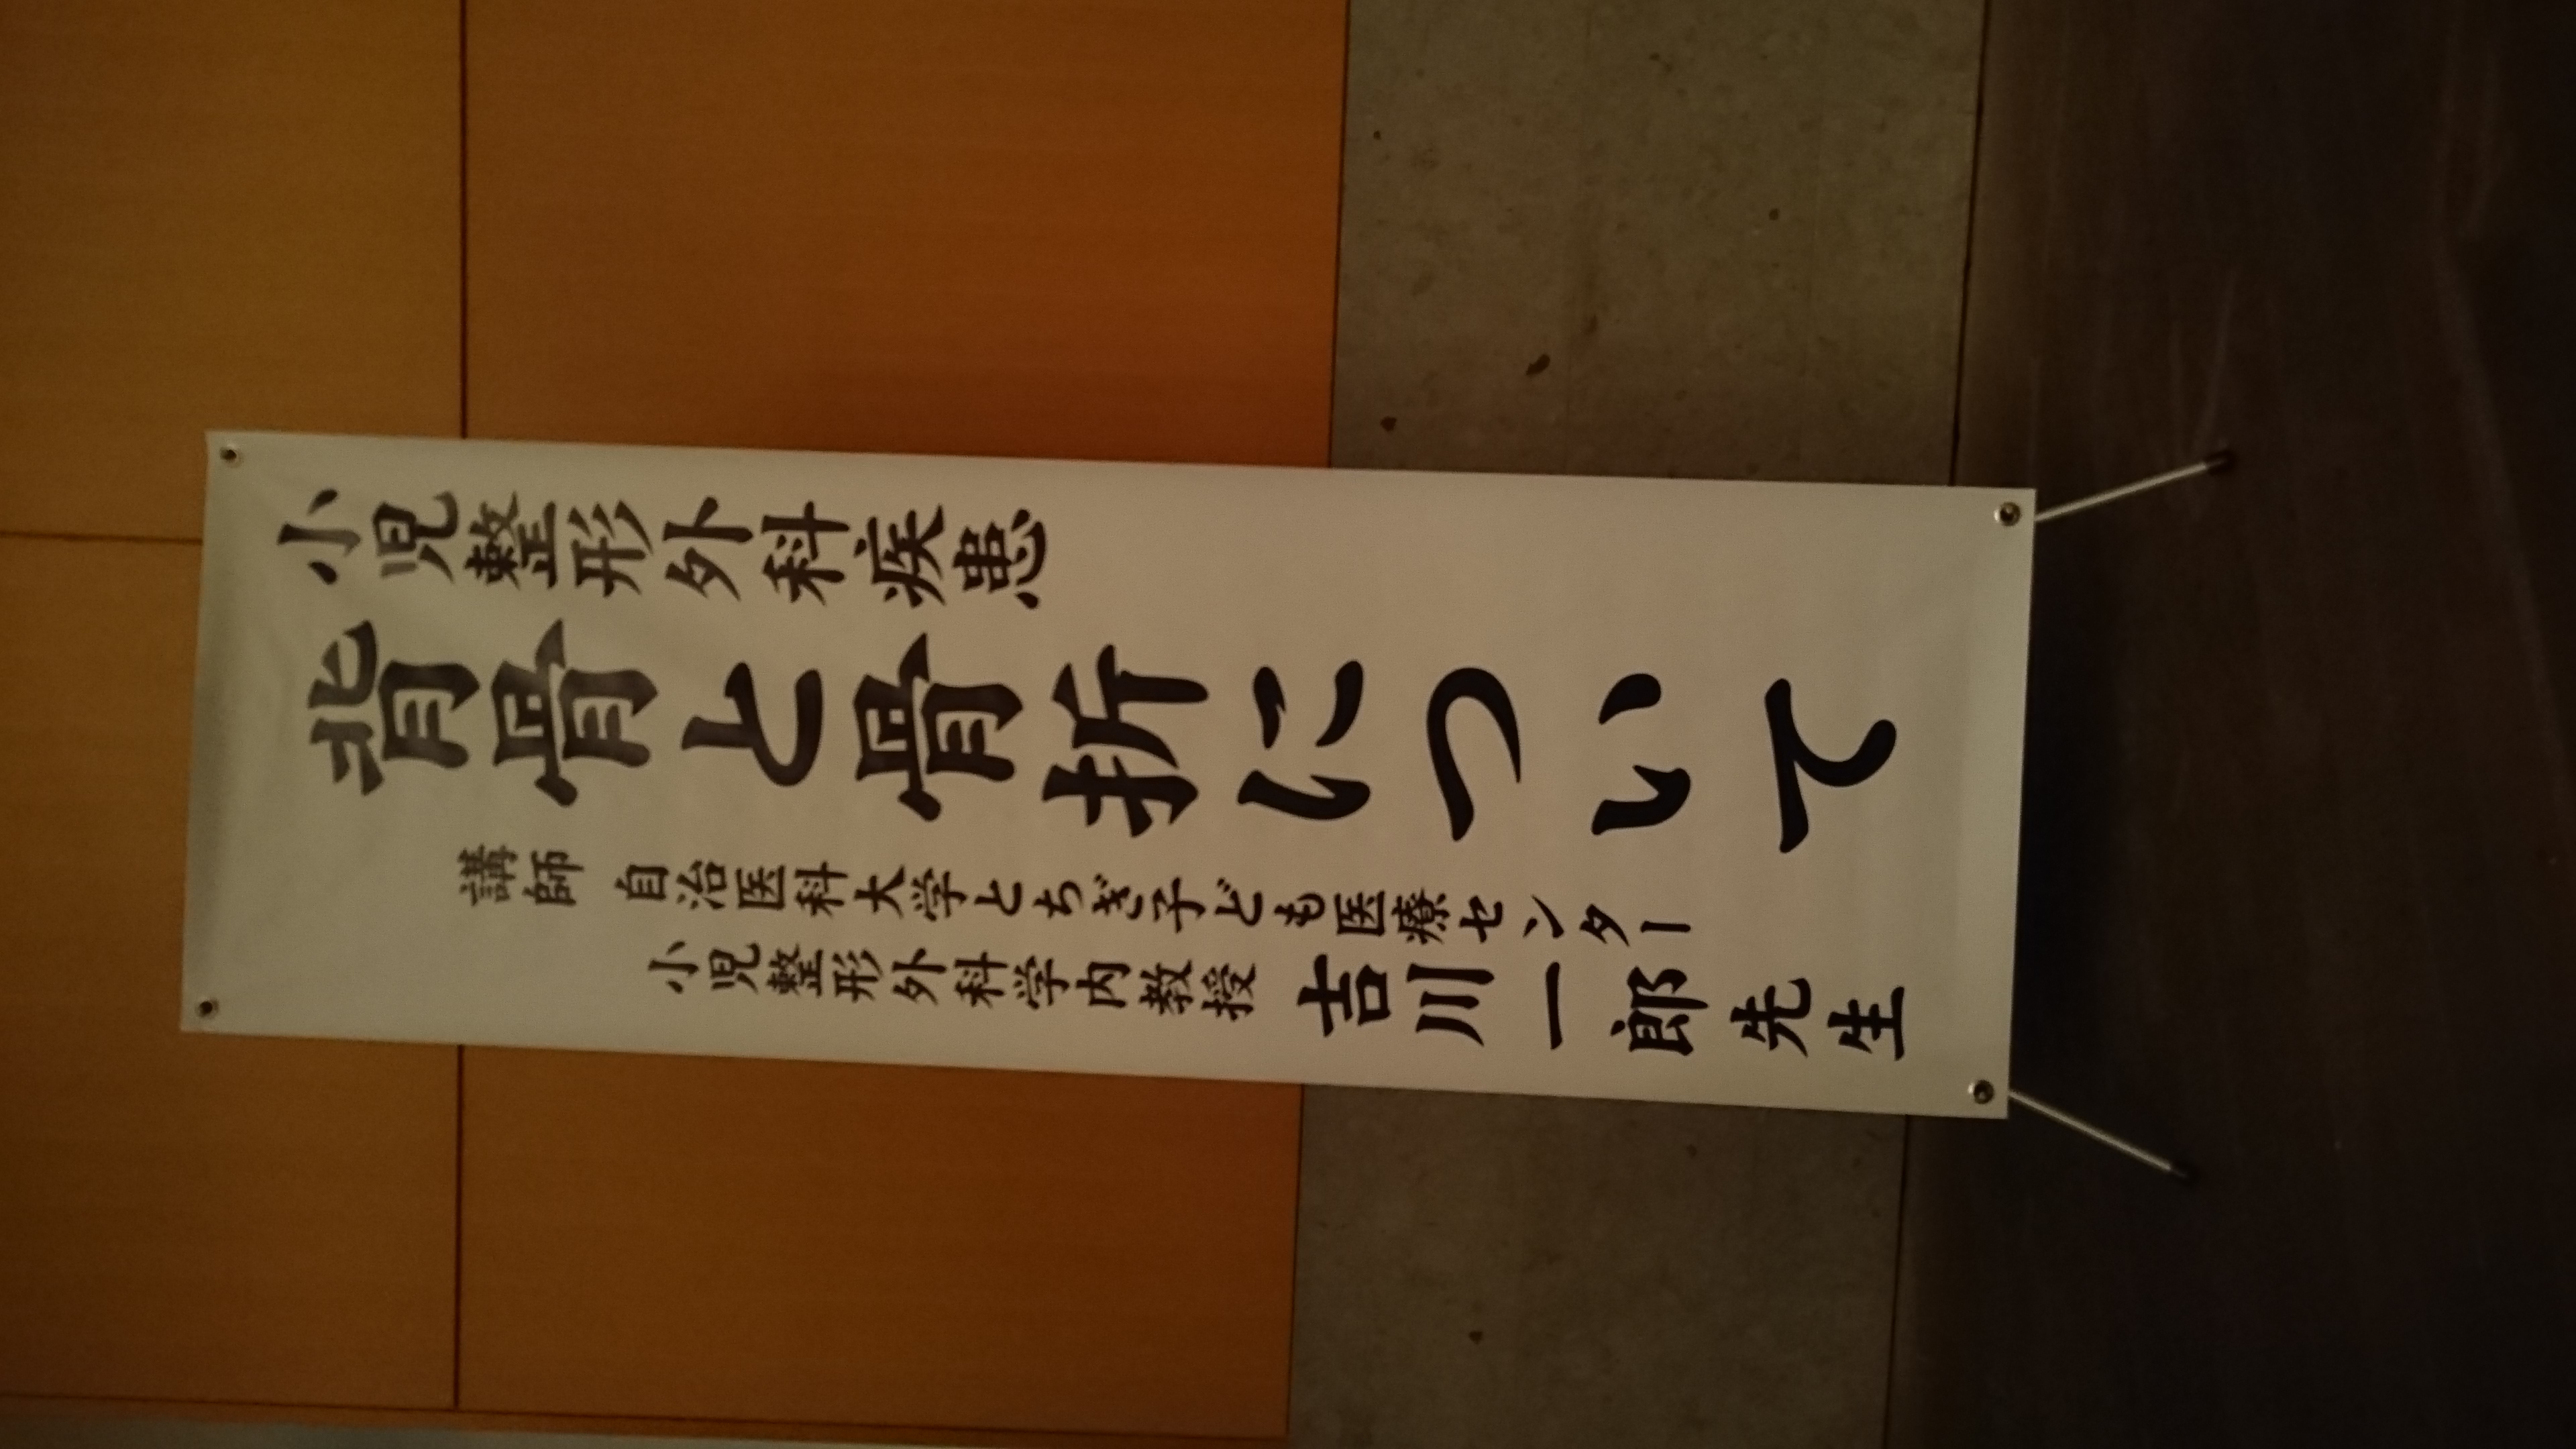 小児整形外科疾患
背骨と骨折について
講師 自治医科大学とちぎ子ども医療センター
小児整形外科学内教授 吉川一郎先生